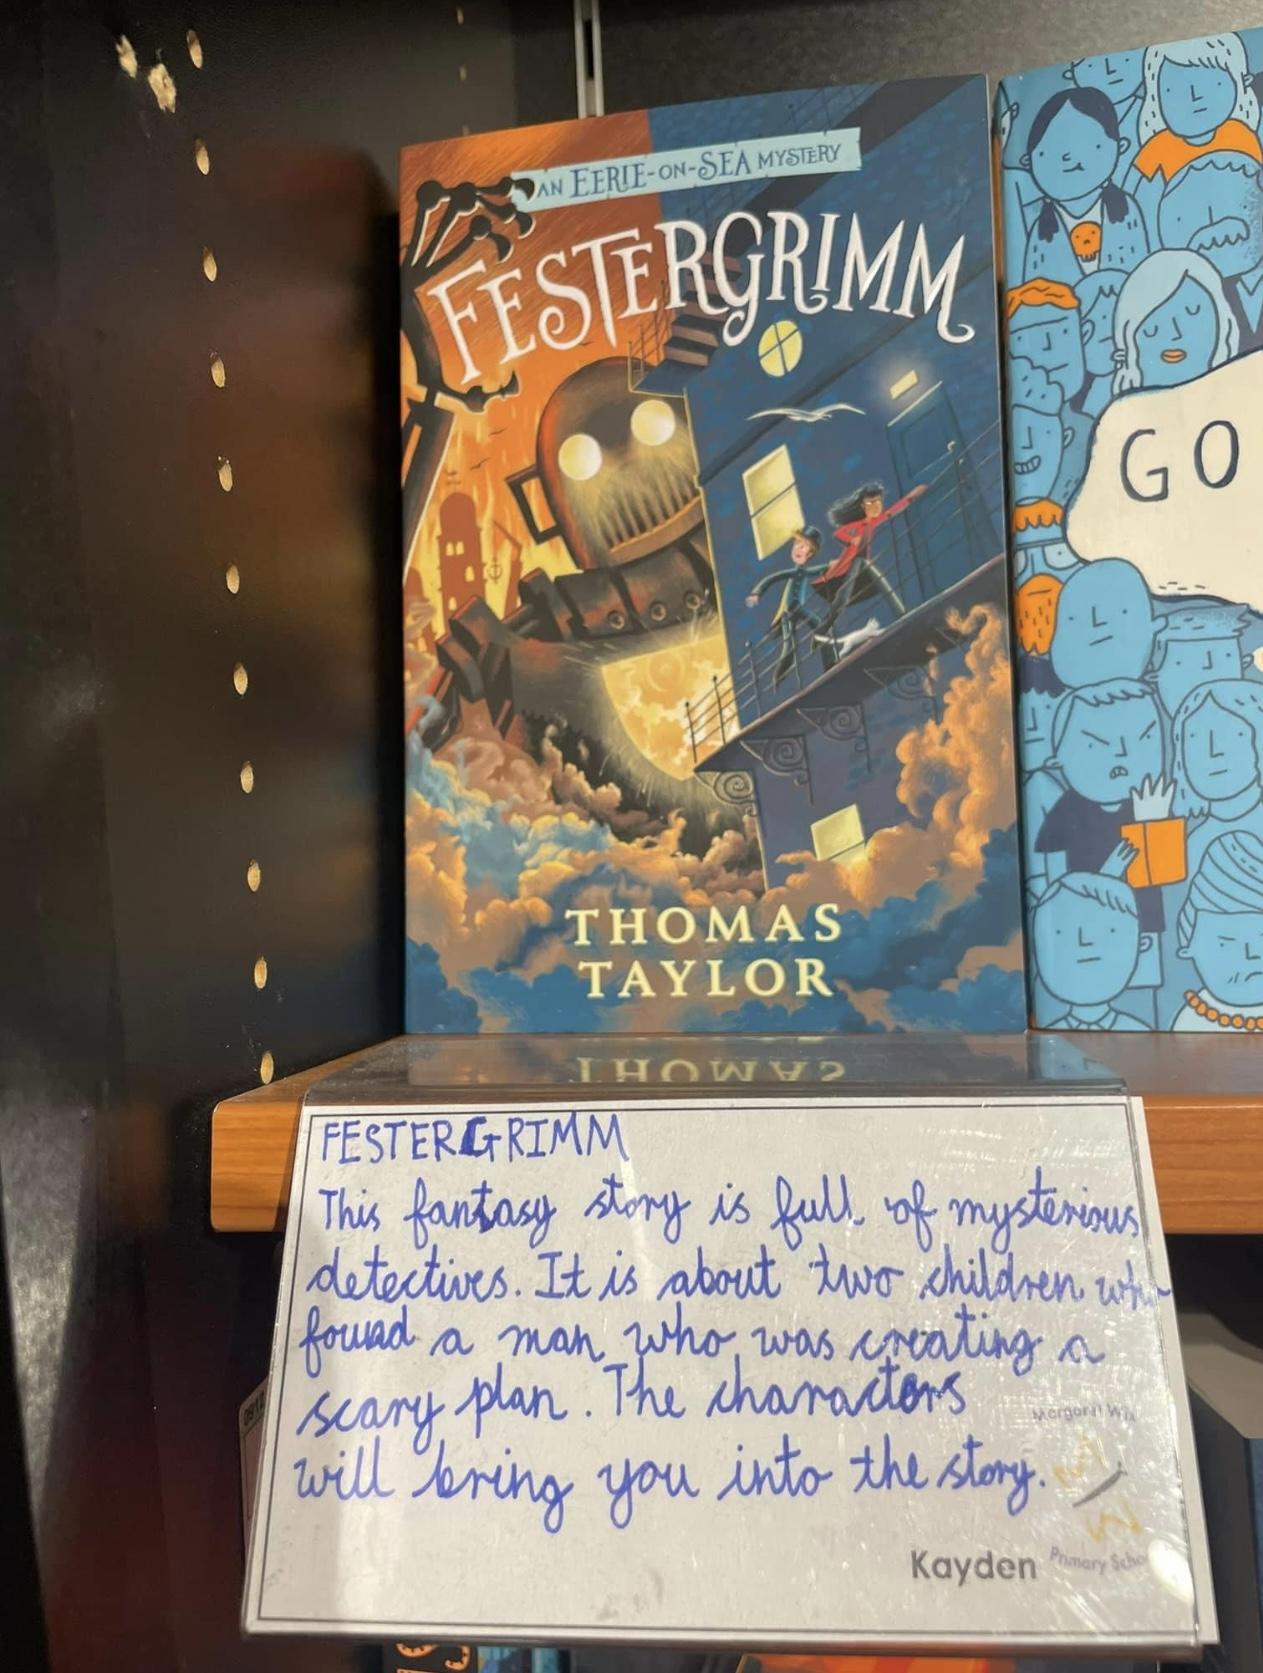 AN EERIE-ON-SEA MYSTERY
FESTERGRIMM
GO
THOMAS
TAYLOR
FESTERGRIMM
This fantasy story is full of mysterious
detectives. It is about two children who
found a man who was creating a
scary plan. The charactors
will bring you into the story.
Margaret Wix
Primary Scho
Kayden